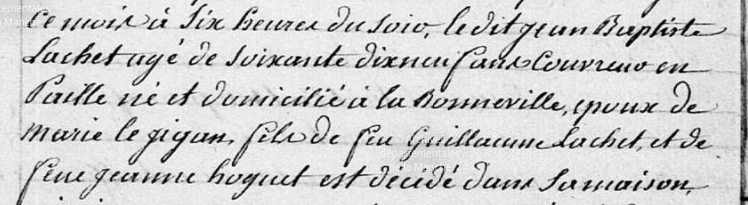 Ce mois à Six heures du soir, ledit jean Baptiste
Lachet agé de Soixante dixneuf ans Couvreur en
Paille né et domicilié à la Bonneville, epoux de
Marie le gigan, fils de feu Guillaume Lachet, et de
feue jeanne hoguet est décédé dans Samaison